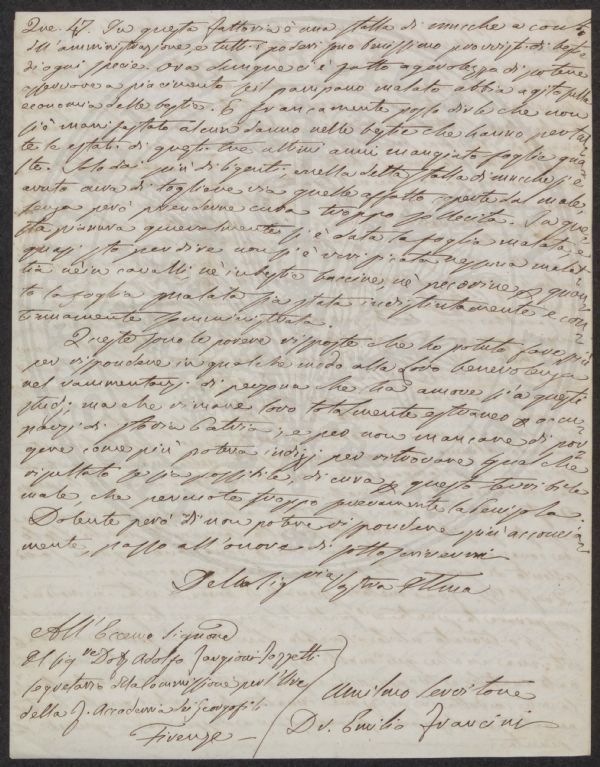 Que. 47. In questa fattoria è una stalla di mucche a conto
dell'amministrazione e tutti i poderi sono benissimo provvisti di bestie
di ogni specie. Ora dunque ci è fatto agevolezza di potere
a piacimento se il pampano malato abbia agito sulla
economia delle bestie. E francamente posso dirle che non
si è manifestato alcun danno nelle bestie che hanno per tut-
te le estati di questi tre ultimi anni mangiato foglia gua-
sta. Solo dai più diligenti, e nella detta stalla di mucche si è
avuto cura di togliere via quelle affatto coperte dal male,
senza però prenderne cura troppo sollecita. In que-
sta pianura generalmente si è data la foglia malata, e
quasi sto per dire non si è verificata nessuna malat-
tia nè in cavalli nè in bestie vaccine, nè pecorine quan-
to la foglia malata sia stata indistintamente e con-
tinuamente somministrata.
Queste sono le povere risposte che ho potuto fare
per rispondere in qualche modo alla Loro benevolenza
nel rammentarsi di persona che ha amore sì a questi
studj, ma che rimane loro totalmente estraneo
di storia patria; e per non mancare di por-
gere come più poteva indizj per ritrovare qualche
resultato se sia possibile, di cura a questo terribile
male che percuote troppo gravemente la Penisola.
Dolente però di non potere rispondere più acconcia-
mente, passo all'onore di sottoscrivermi
Della Sig.ria Vostra Illma
All'Eccmo Signore
Il Sig.re Dott Adolfo Targioni Tozzetti
Segretario della Commissione per l'Uve
della I. Accademia dei Georgofili
Firenze
Umilmo Servitore
Dr. Emilio Francini